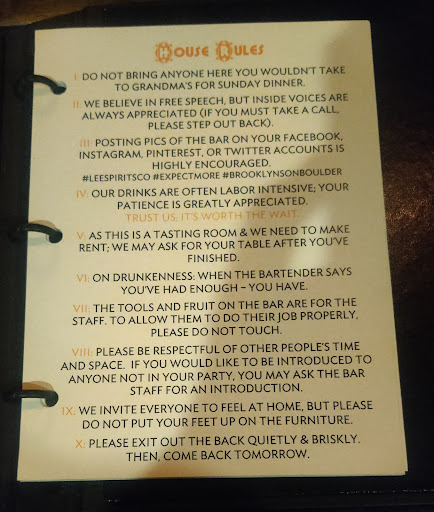 HOUSE RULES
I: DO NOT BRING ANYONE HERE YOU WOULDN'T TAKE
TO GRANDMA'S FOR SUNDAY DINNER.
II: WE BELIEVE IN FREE SPEECH, BUT INSIDE VOICES ARE
ALWAYS APPRECIATED (IF YOU MUST TAKE A CALL,
PLEASE STEP OUT BACK).
III: POSTING PICS OF THE BAR ON YOUR FACEBOOK,
INSTAGRAM, PINTEREST, OR TWITTER ACCOUNTS IS
HIGHLY ENCOURAGED.
#LEESPIRITSCO #EXPECTMORE #BROOKLYNSONBOULDER
IV: OUR DRINKS ARE OFTEN LABOR INTENSIVE; YOUR
PATIENCE IS GREATLY APPRECIATED.
TRUST US; IT'S WORTH THE WAIT.
V: AS THIS IS A TASTING ROOM & WE NEED TO MAKE
RENT; WE MAY ASK FOR YOUR TABLE AFTER YOU'VE
FINISHED.
VI: ON DRUNKENNESS: WHEN THE BARTENDER SAYS
YOU'VE HAD ENOUGH – YOU HAVE.
VII: THE TOOLS AND FRUIT ON THE BAR ARE FOR THE
STAFF. TO ALLOW THEM TO DO THEIR JOB PROPERLY,
PLEASE DO NOT TOUCH.
VIII: PLEASE BE RESPECTFUL OF OTHER PEOPLE'S TIME
AND SPACE. IF YOU WOULD LIKE TO BE INTRODUCED TO
ANYONE NOT IN YOUR PARTY, YOU MAY ASK THE BAR
STAFF FOR AN INTRODUCTION.
IX: WE INVITE EVERYONE TO FEEL AT HOME, BUT PLEASE
DO NOT PUT YOUR FEET UP ON THE FURNITURE.
X: PLEASE EXIT OUT THE BACK QUIETLY & BRISKLY.
THEN, COME BACK TOMORROW.